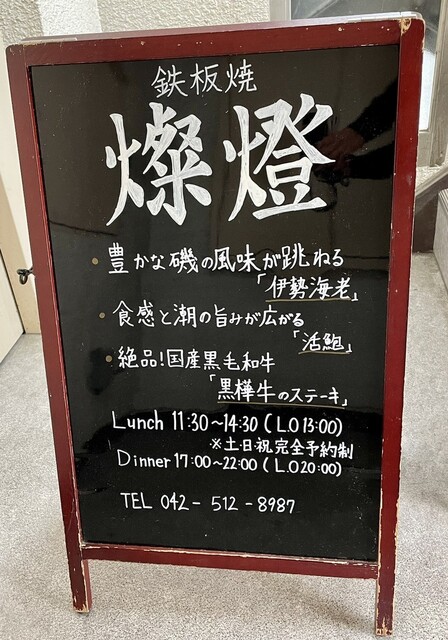 鉄板焼
燦燈
・豊かな磯の風味が跳ねる
「伊勢海老」
・食感と潮の旨みが広がる
「活鮑」
・絶品!国産黒毛和牛
「黒樺牛のステーキ」
Lunch 11:30～14:30 (L.O 13:00)
※土日祝完全予約制
Dinner 17:00～22:00 (L.O 20:00)
TEL 042-512-8987